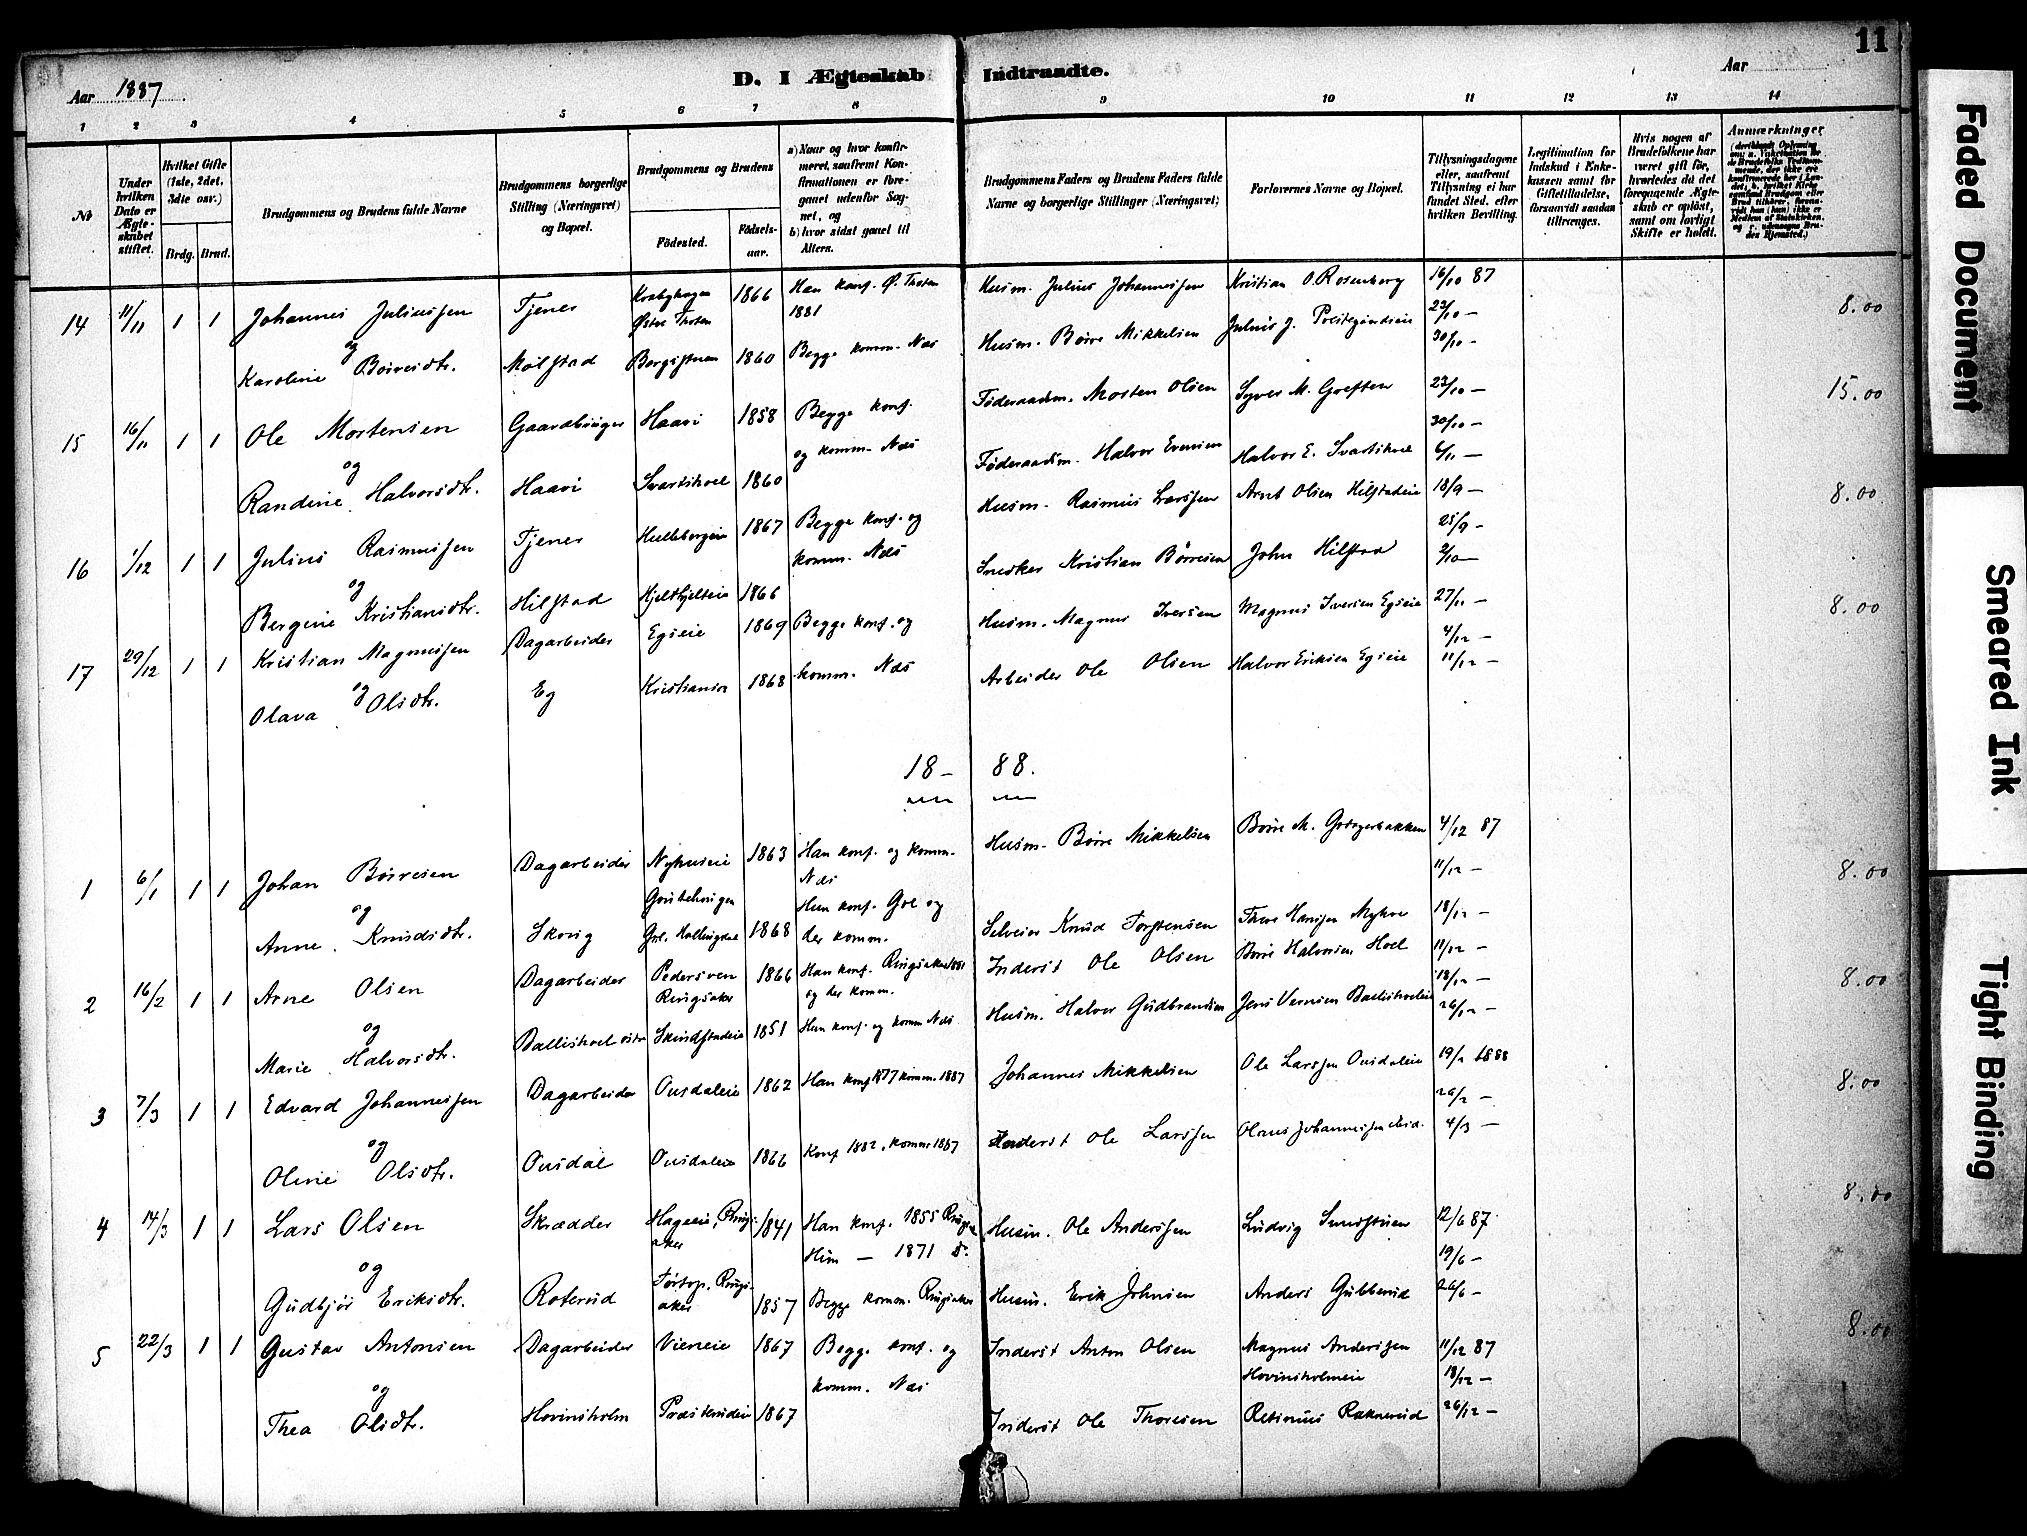 11
Aar 1887
D. I Ægteskab Indtraadte.
Aar
1 2 3 4 5 6 7 8 9 10 11 12 13 14
№
Under hvilken Dato er Ægteskabet stiftet.
Hvilket Gifte (1ste, 2det, 3die osv.)
Brdg. Brud.
Brudgommens og Brudens fulde Navne
Brudgommens borgerlige Stilling (Næringsvei) og Bopæl.
Brudgommens og Brudens
Födested.
Födselsaar.
a) Naar og hvor konfirmeret, saafremt Konfirmationen er foregaaet udenfor Sognet, og
b) hvor sidst gaaet til Alters.
Brudgommens Faders og Brudens Faders fulde Navne og borgerlige Stillinger (Næringsvei)
Forlovernes Navne og Bopæl.
Tillysningsdagene eller, saafremt Tillysning ei har fundet Sted, efter hvilken Bevilling.
Legitimation for Indskud i Enkekassen samt for Giftetilladelse, forsaavidt saadan tiltrænges.
Hvis nogen af Brudefolkene har været gift før, hvorledes da det foregaaende Ægteskab er opløst, samt om lovligt Skifte er holdt.
Anmærkninger
14 11/11 1 1 Johannes Juliussen Tjener Østre Thoten 1866 Han konf. Ø. Thoten 1881 Husm. Julius Johannessen Kristian O. Rosenberg 16/10 87 8.00
og 23/10 —
Karoline Börresdtr. Molstad 1860 Begge komm. Næs Husm. Börre Mikkelsen Julius J. 30/10 —
15 16/11 1 1 Ole Mortensen Gaardbruger Haavi 1858 Begge konf. Föderaadsm. Morten Olsen Syver M. Greften 23/10 — 15.00
og og komm. Næs 30/10 —
Randine Halvorsdtr. Haavi 1860 Föderaadsm. Halvor Evensen Halvor E. 6/11 —
16 1/12 1 1 Julius Rasmussen Tjener 1867 Begge konf. og Husm. Rasmus Larssen Arnt Olsen Hilstadeie 18/9 — 8.00
og komm. Næs 25/9 —
Bergine Kristiansdtr. Hilstad 1866 Snedker Kristian Börresen John Hilstad 2/10 —
17 29/12 1 1 Kristian Magnussen Dagarbeider Egseie 1869 Begge konf. og Husm. Magnus Iversen Magnus Iversen Egseie 27/11 — 8.00
og komm. Næs 4/12 —
Olava Olsdtr. Eg Kristiania 1868 Arbeider Ole Olsen Halvor Eriksen Egseie 11/12 —
18— 88.
1 6/1 1 1 Johan Börresen Dagarbeider Nyhuseie 1863 Han konf. og komm. Næs Husm. Börre Mikkelsen Börre M. 4/12 87 8.00
og 11/12 —
Anne Knudsdtr. Skoug Gol, Hallingdal 1868 Hun konf. Gol og der komm. Selveier Knud Torstensen Thore Hanssen 18/12 —
2 16/2 1 1 Arne Olsen Dagarbeider Pedersven Ringsaker 1866 Han konf. Ringsaker 1881 og der komm. Inderst Ole Olsen Börre Halvorsen Hoel 11/12 — 8.00
og 18/12 —
Marie Halvorsdtr. Ballishoel østre Skredstadeie 1851 Hun konf. og komm. Næs Husm. Halvor Gudbrandsen 26/12 —
3 7/3 1 1 Edvard Johannessen Dagarbeider Ousdaleie 1862 Han konf 1877 komm. 1887 Johannes Mikkelsen Ole Larssen Ousdaleie 19/2 1888 8.00
og 26/2 —
Oline Olsdtr. Ousdal Ousdaleie 1866 Konf 1882, komm 1887 Inderst Ole Larssen Olaus Johannessen ibid. 4/3 —
4 14/3 1 1 Lars Olsen Skrædder Hageeie, Ringsaker 1841 Han konf. 1855 Husm. Ole Anderssen Ludvig Smedstuen 12/6 87 8.00
og Hun — 1871 do. 19/6 —
Gudbjör Eriksdtr. Roterud Ringsaker 1857 Begge komm. Ringsaker Husm. Erik Johnsen Anders Gubberud 26/6 —
5 22/3 1 1 Gustav Antonsen Dagarbeider Vieneie 1867 Begge konf. og Inderst Anton Olsen Magnus Anderssen Hovinsholmeie 11/12 87 8.00
og komm. Næs 18/12 —
Thea Olsdtr. Hovinsholm Præsterudeie 1867 Inderst Ole Thoresen Retinius Raknerud 26/12 —
Faded Document
Smeared Ink
Tight Binding